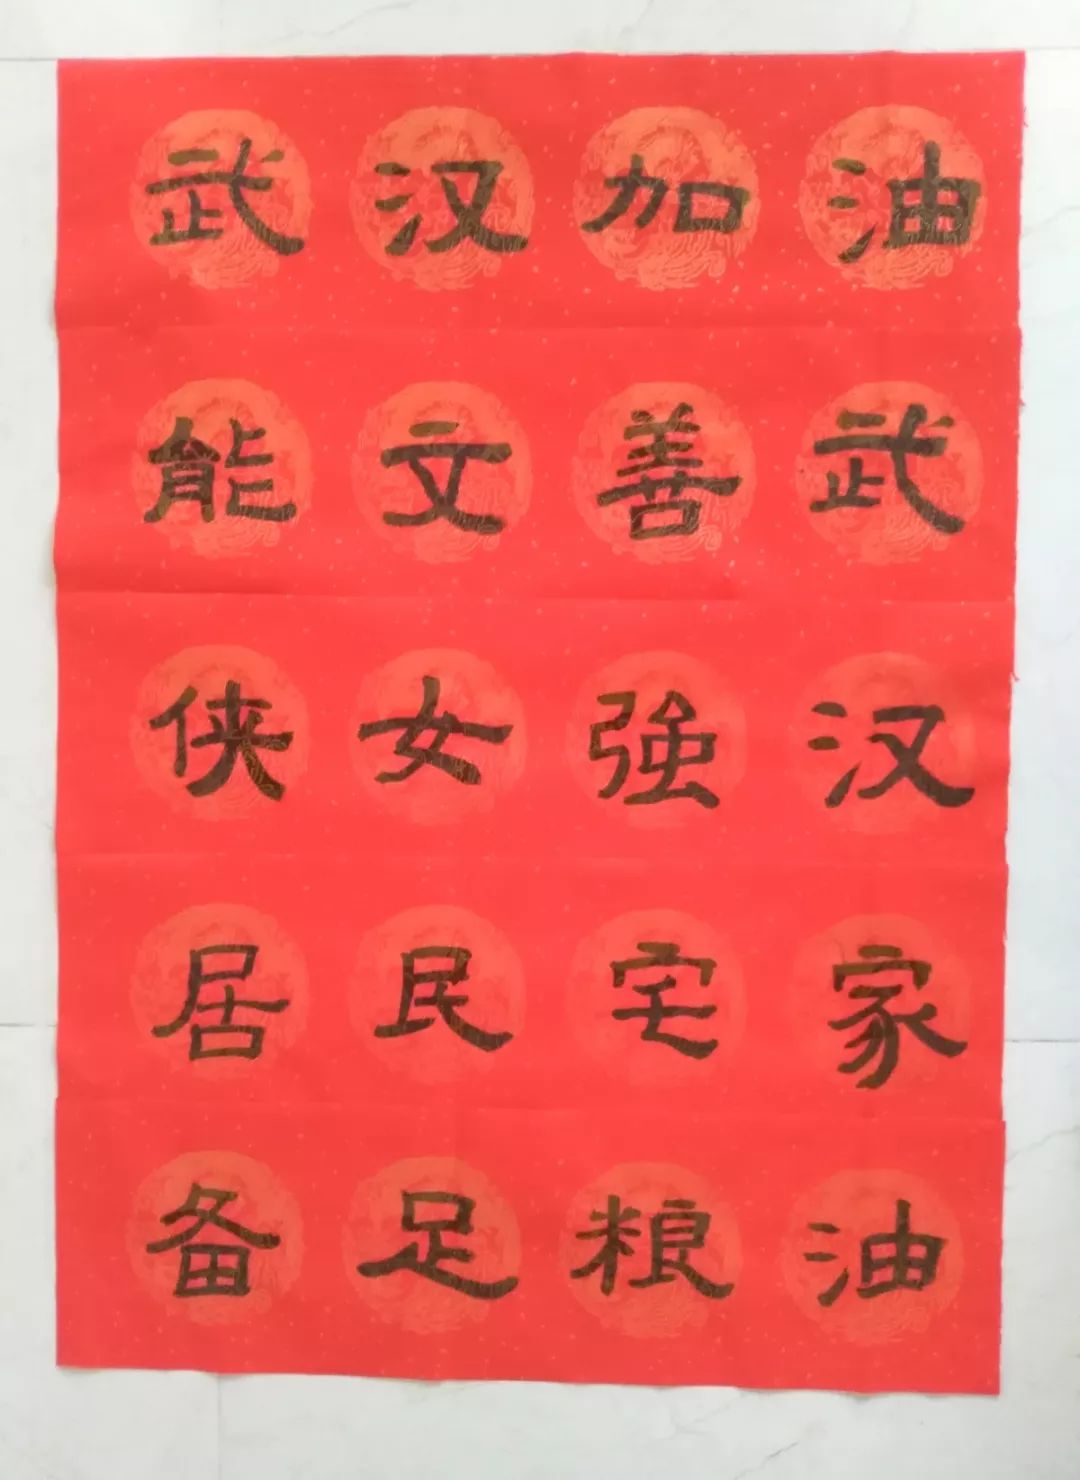 武汉加油
能文善武
侠女強汉
居民宅家
备足粮油